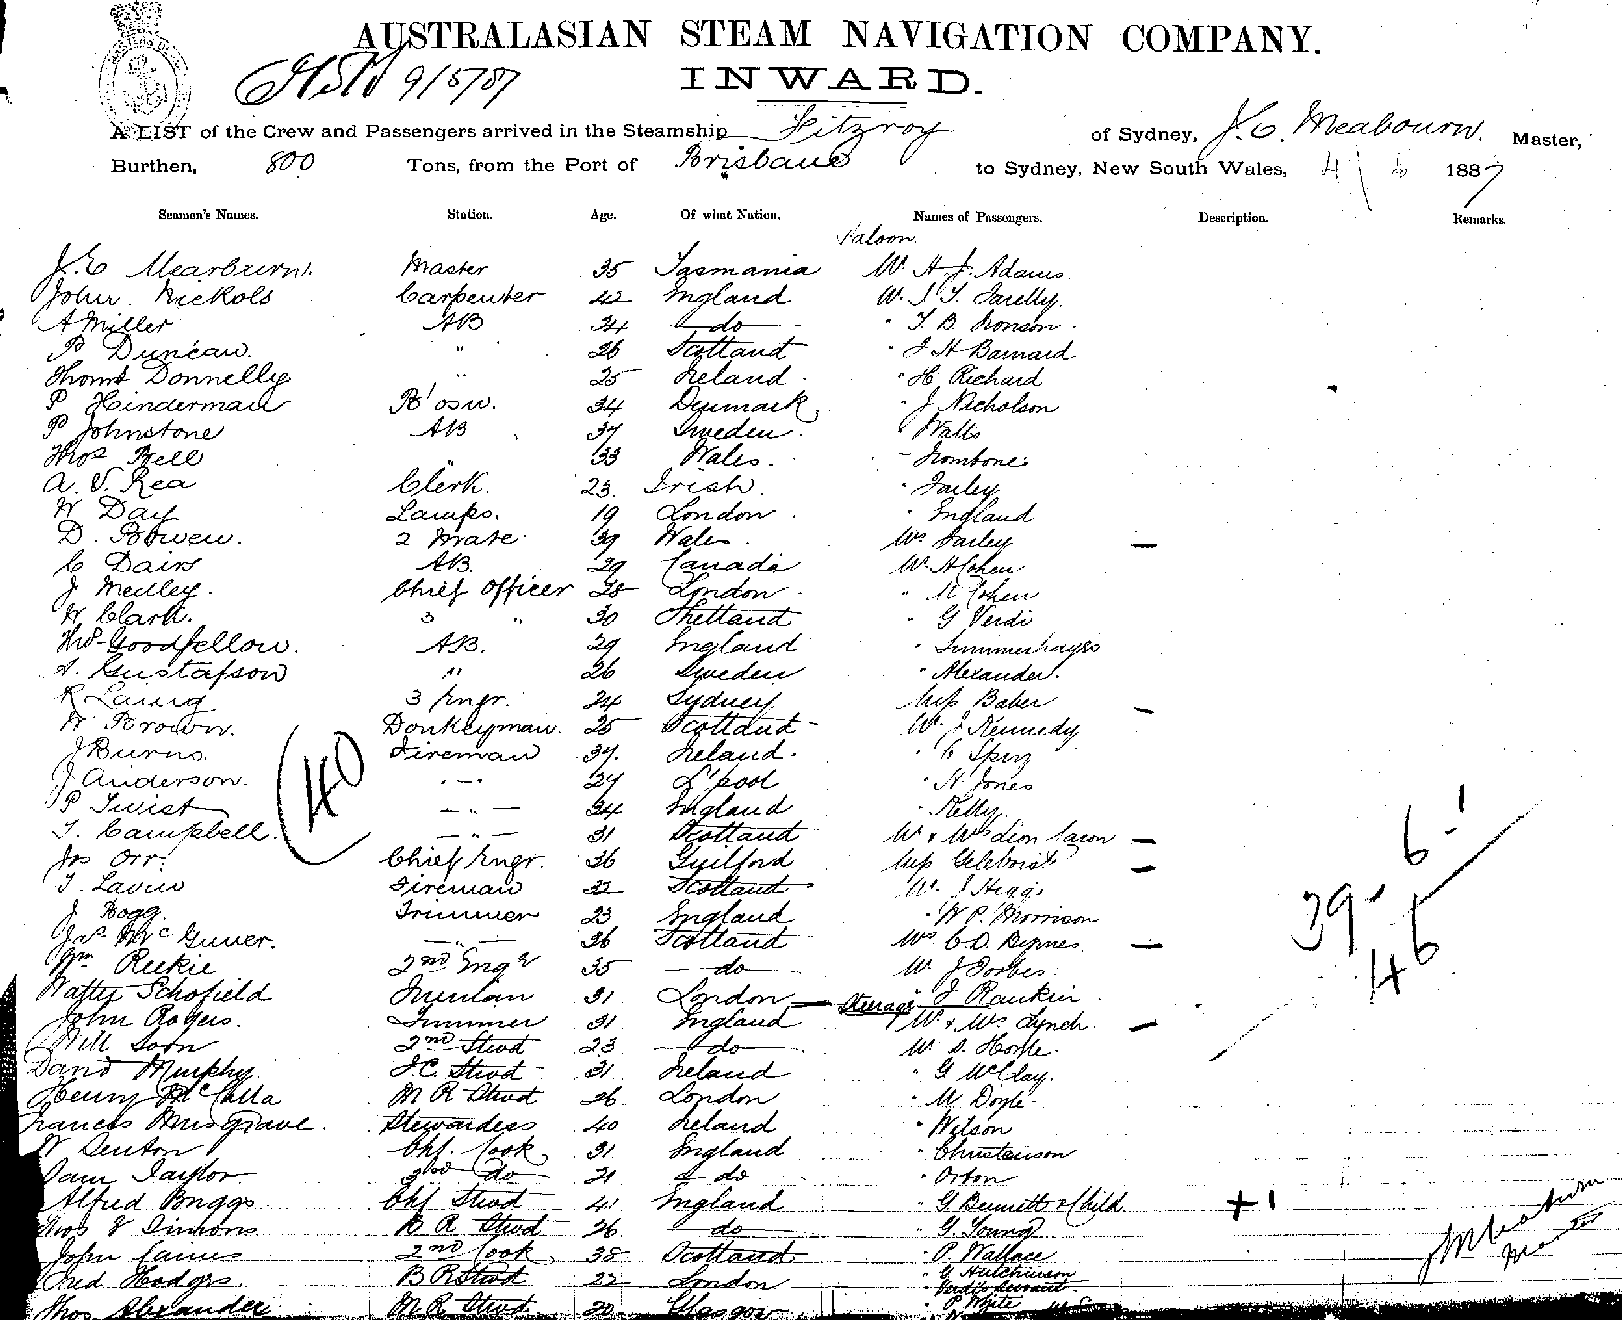 AUSTRALASIAN STEAM NAVIGATION COMPANY.
9/5/87 INWARD.
A LIST of the Crew and Passengers arrived in the Steamship Fitzroy of Sydney, J. C. Meabourn. Master,
Burthen, 800 Tons, from the Port of Brisbane to Sydney, New South Wales, 4 1887
Seamen's Names. Station. Age. Of what Nation. Names of Passengers. Description. Remarks.
Saloon.
J. C Mearburn. Master 35 Tasmania W. H. J. Adams
John Nickols Carpenter 42 England
A Miller AB 34 do " T. B. Ironson
P Duncan. " 26 Scotland " J H Barnard
Thomt Donnelly " 25 Ireland " H. Richard
P Hinderman B'osn. 34 Denmark " J. Nicholson
P Johnstone AB 37 Sweden " Watts
Thos Bell 33 Wales.
A. V. Rea Clerk. 23. Irish. " Farley
W Day Lamps. 19 London " England
D. Bowen. 2 Mate 39 Wales Farley —
C Davis AB. 29 Canada W. H Cohen
J Medley. Chief Officer London " M Cohen
W. Clark. 3 " 30 Shetland " G Verdi
Thos Goodfellow. AB. 29 England " Summerhayes
A. Gustafson " 26 Sweden " Alexander.
R Laing 3 Engr. 24 Sydney Baber —
W Brown. Donkeyman. 25 Scotland J. Kennedy
J Burns. Fireman 37. Ireland.
J Anderson. " 27 L'pool " Jones
P Twist " 34 England " Kelly
T. Campbell. " 31 Scotland —
(40
6 - 1
Jas Orr. Chief Engr. 36 Guilford —
T. Lavin Fireman 22 Scotland J Higgs
J. Hogg. Trimmer 23 England " W P. Morrison
39 -
Jas McGuiver. " 36 Scotland C. D. Byrnes —
46
Wm Reekie 2nd Engr 35 do J Forbes
Walter Schofield 31 London " J Rankin
Steerage
John Rogers. Trimmer 31 England Lynch. —
Will Soon 2nd Stwd 23 do
David Murphy. F.C. Stwd 31 Ireland " G McClay.
Henry McCalla M R Stwd 26 London " M Doyle
Frances Musgrave. Stewardess 40 Ireland " Wilson
W Denton Chf. Cook 31 England " Christenson
Sam Taylor 2nd do 21 do " Orton
Alfred Briggs Chf Stwd 41 England " G Bennett & Child + 1
Thos E Simons B R Stwd 26 do " G. Young
John James 2nd Cook 38 Scotland " P. Wallace
Fred Hodges. B R Stwd 22 London " G Hutchinson
Thos Alexander M R Stwd 20 Glasgow " P White